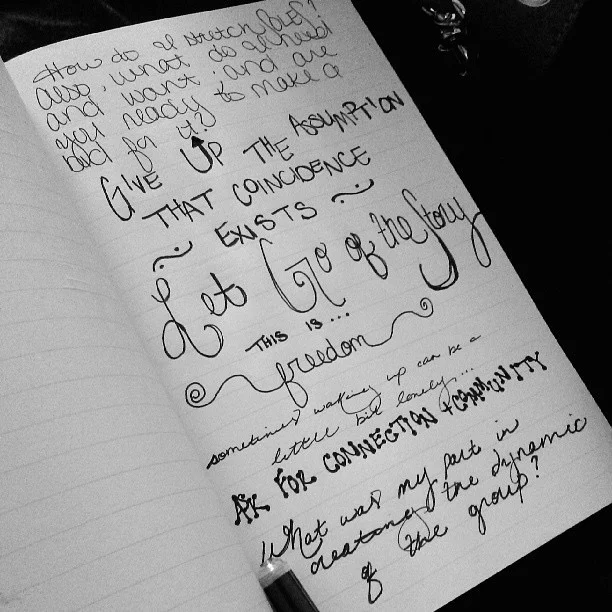 How do I stretch [self]?
also, what do I need
and want, and are
you ready to make a
bid for it?
GIVE UP THE ASSUMPTION
THAT COINCIDENCE
~ EXISTS ~
Let Go of the Story
THIS IS...
freedom
sometimes waking up can be a
little bit lonely...
ASK FOR CONNECTION + COMMUNITY
What was my part in
creating the dynamic
of the group?